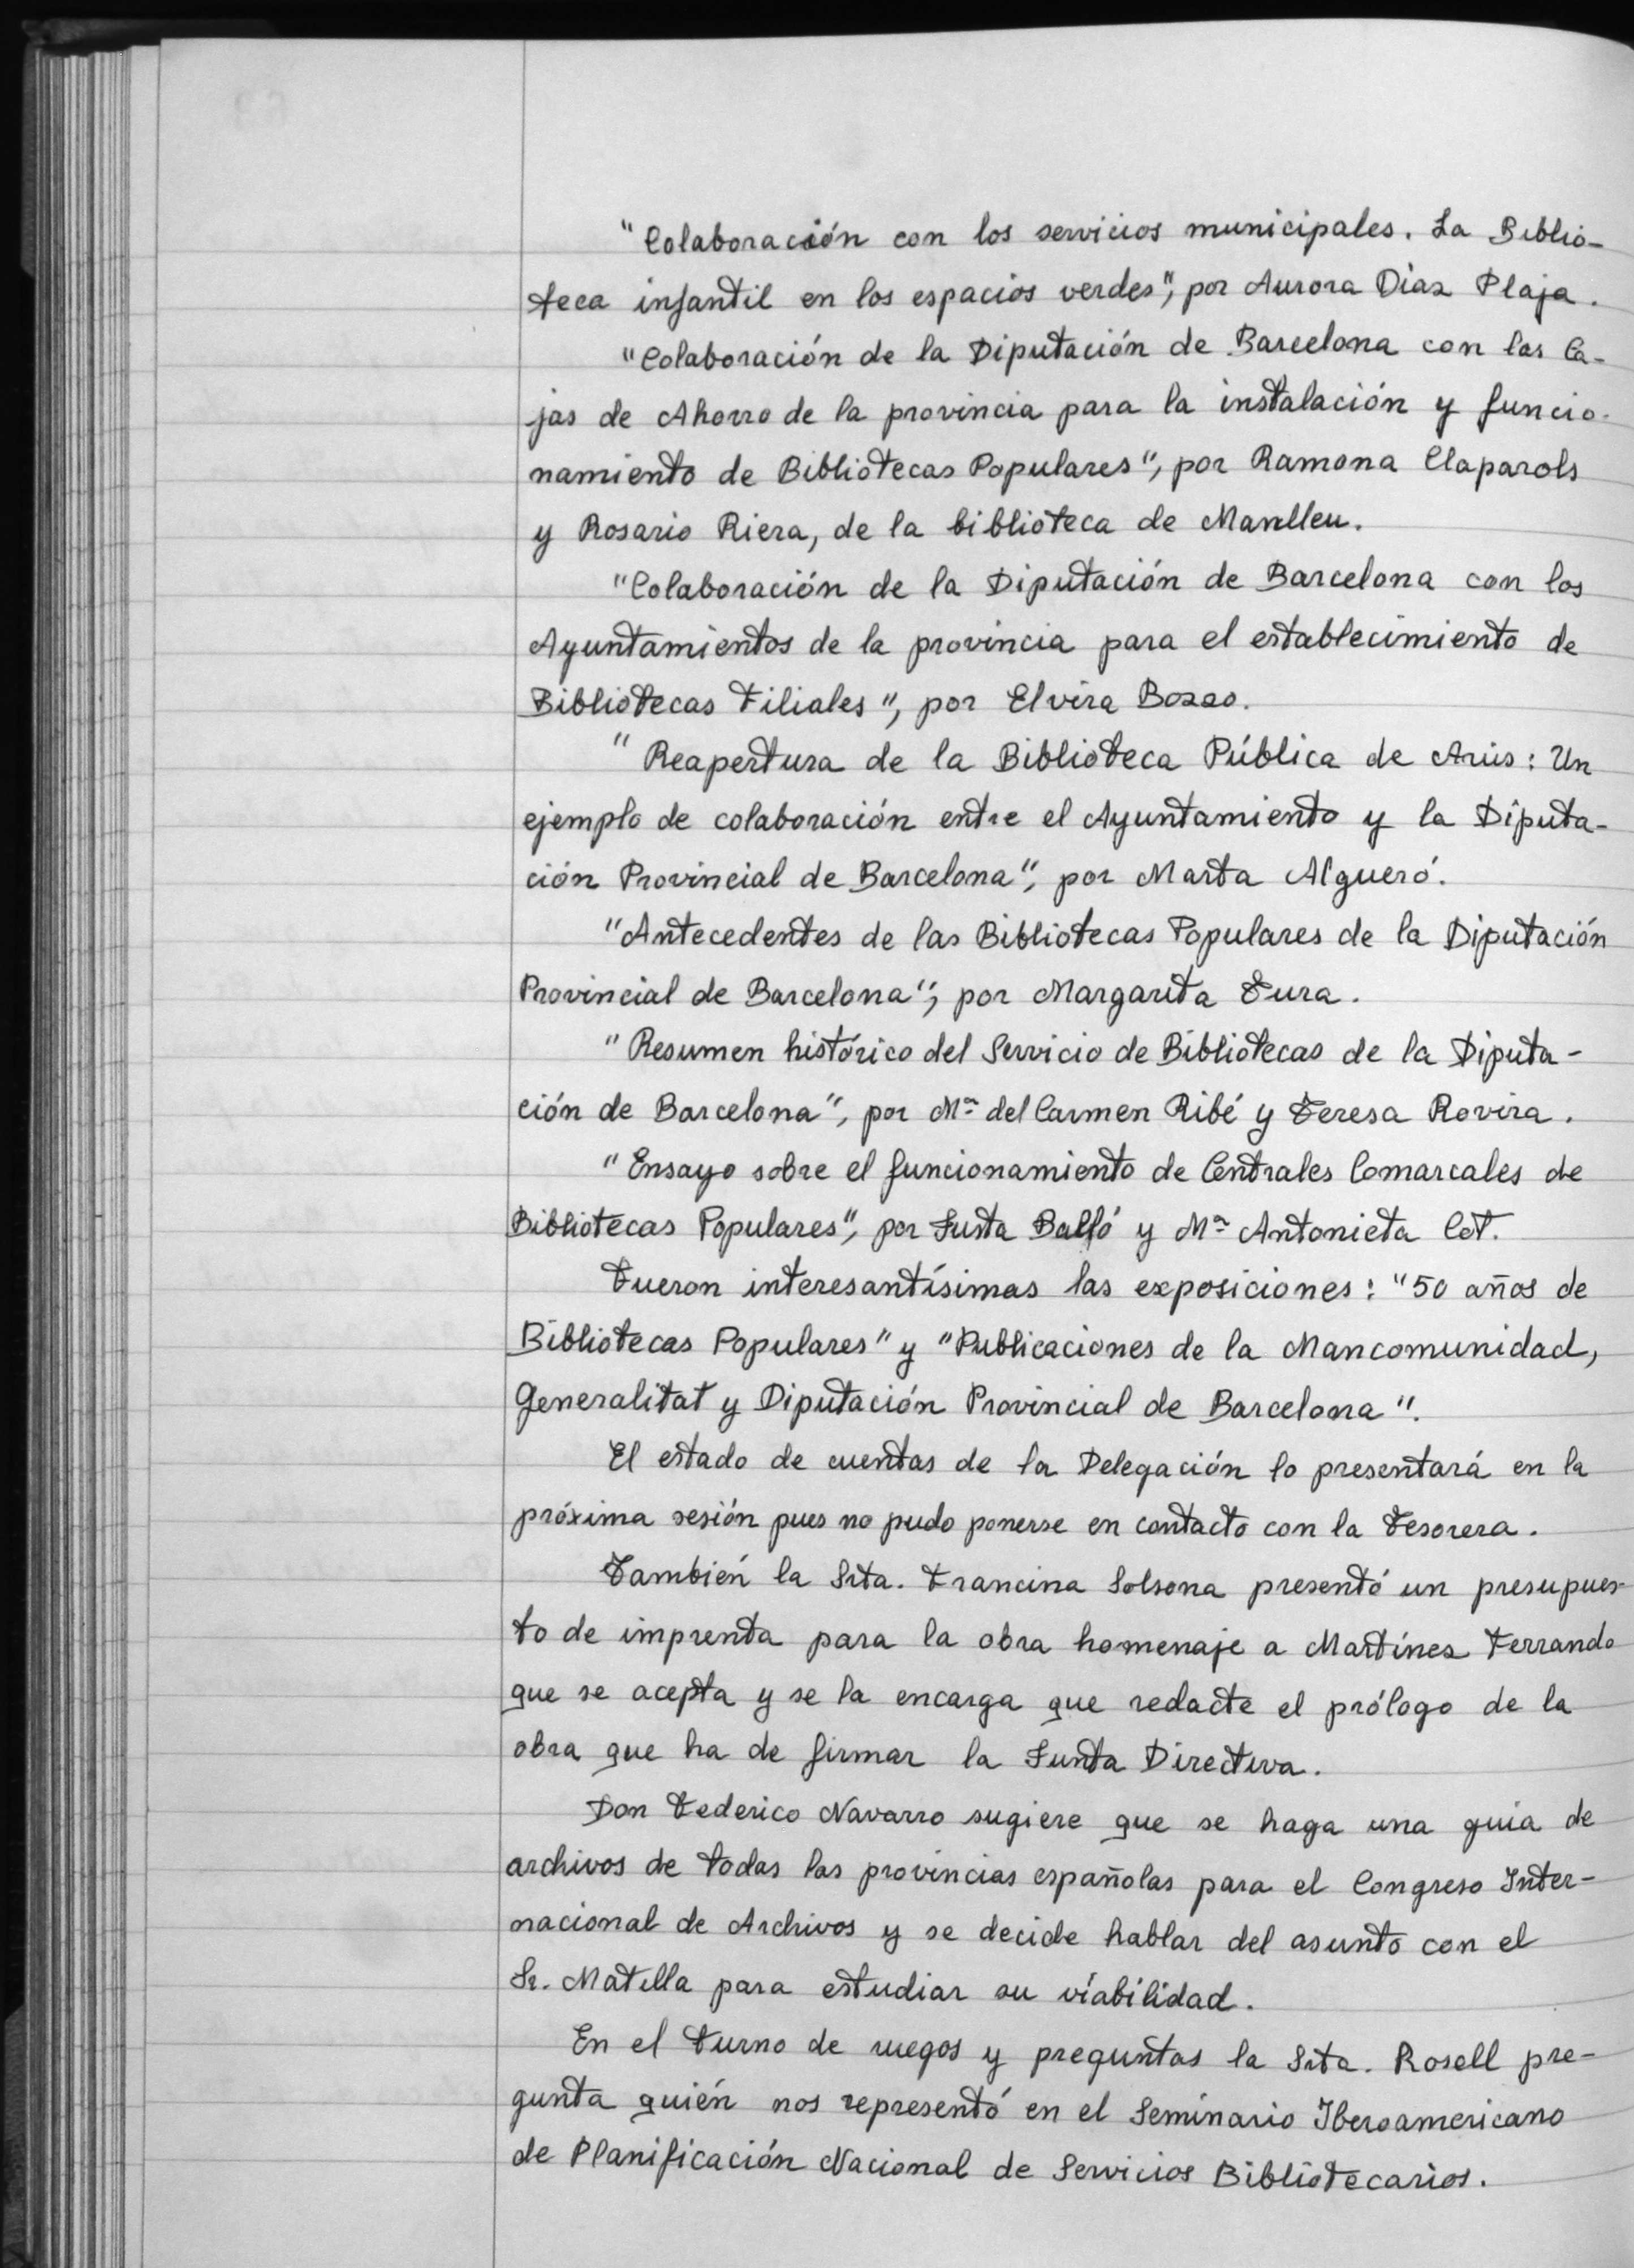 "Colaboración con los servicios municipales. La Biblio-
teca infantil en los espacios verdes", por Aurora Díaz Plaja.
"Colaboración de la Diputación de Barcelona con las Ca-
jas de Ahorro de la provincia para la instalación y funcio-
namiento de Bibliotecas Populares", por Ramona Claparols
y Rosario Riera, de la biblioteca de Manlleu.
"Colaboración de la Diputación de Barcelona con los
Ayuntamientos de la provincia para el establecimiento de
Bibliotecas Filiales", por Elvira Bozzo.
"Reapertura de la Biblioteca Pública de Arús: Un
ejemplo de colaboración entre el Ayuntamiento y la Diputa-
ción Provincial de Barcelona", por Marta Algueró.
"Antecedentes de las Bibliotecas Populares de la Diputación
Provincial de Barcelona", por Margarita Tura.
"Resumen histórico del Servicio de Bibliotecas de la Diputa-
ción de Barcelona", por Mª del Carmen Ribé y Teresa Rovira.
"Ensayo sobre el funcionamiento de Centrales Comarcales de
Bibliotecas Populares", por Justa Balló y Mª Antonieta Cot.
Fueron interesantísimas las exposiciones: "50 años de
Bibliotecas Populares" y "Publicaciones de la Mancomunidad,
Generalitat y Diputación Provincial de Barcelona".
El estado de cuentas de la Delegación lo presentará en la
próxima sesión pues no pudo ponerse en contacto con la Tesorera.
También la Srta. Francina Solsona presentó un presupues-
to de imprenta para la obra homenaje a Martínez Ferrando
que se acepta y se la encarga que redacte el prólogo de la
obra que ha de firmar la Junta Directiva.
Don Federico Navarro sugiere que se haga una guia de
archivos de todas las provincias españolas para el Congreso Inter-
nacional de Archivos y se decide hablar del asunto con el
Sr. Matilla para estudiar su viabilidad.
En el turno de ruegos y preguntas la Srta. Rosell pre-
gunta quién nos representó en el Seminario Iberoamericano
de Planificación Nacional de Servicios Bibliotecarios.